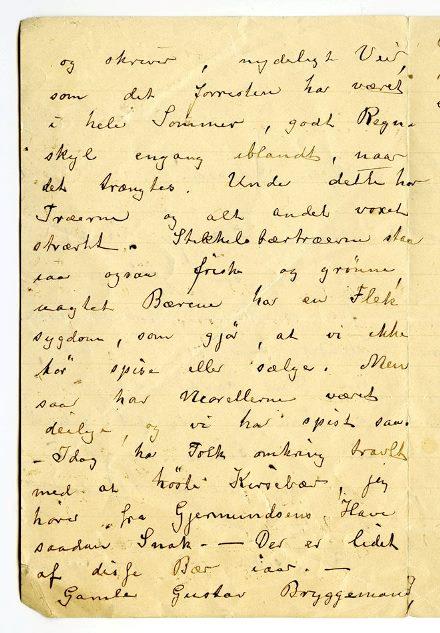 og skriver, nydeligt Veir,
som det forresten har været
i hele Sommer, godt Regn-
skyl engang iblandt, naar
det trængtes. Under dette har
Træerne og alt andet voxet
stræekt. Stikkelsbærtræerne staa
iaar ogsaa friske og grønne,
uagtet Bærene har en Flek
sygdom, som gjør, at vi ikke
tør spise eller sælge. Men
saa har Morellerne været
deilige, og vi har spist saa.
- Idag har Folk omkring travlt
med at høste Kirsebær, jeg
hører fra Gjermundsens Have
saadan Snak. — Der er lidet
af disse Bær iaar. —
Gamle Gustav Bryggemand,